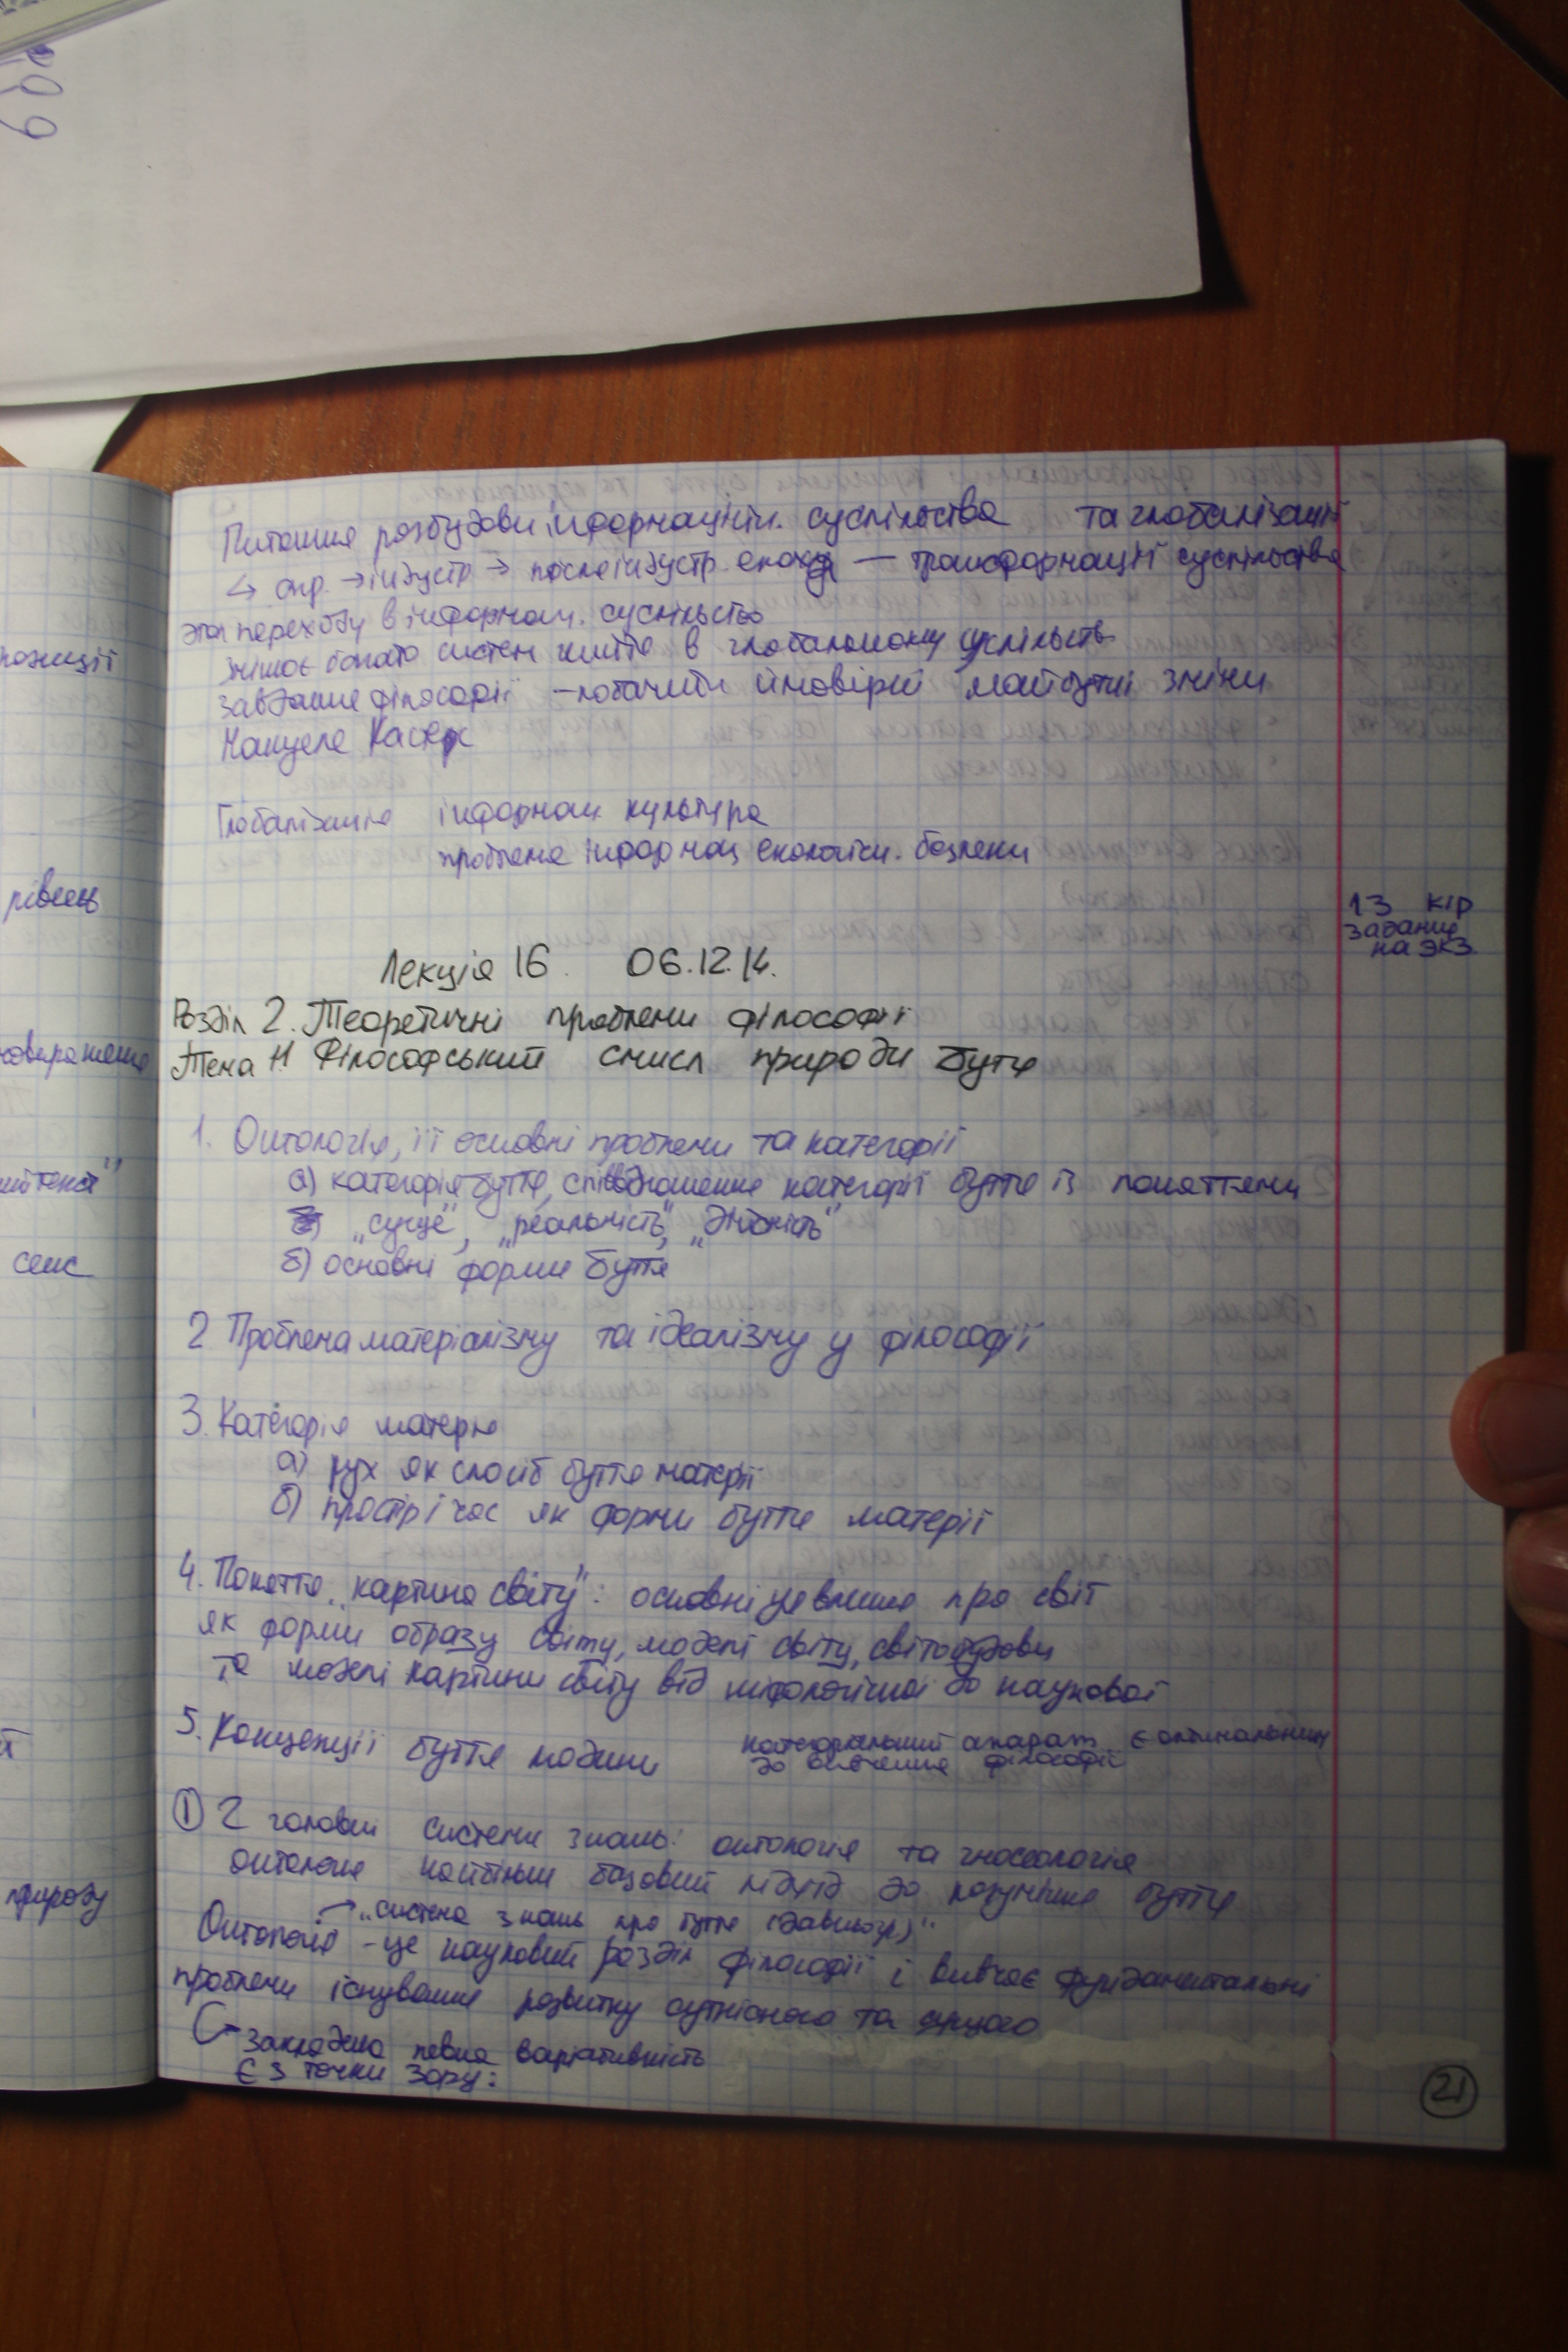 Питання розбудови інформаційн. суспільства та глобалізації
↳ агр. → індустр → послеіндустр. епоху — трансформації суспільства
этап переходу в інформац. суспільство
змінює багато систем життя в глобальному суспільств
Завдання філософії – побачити ймовірні майбутні зміни
Мануель Кастельс
Глобалізація інформац культура
проблема інформац екологічн. безпеки
13 кір
Задание
на экз.
Лекція 16. 06.12.14.
Розділ 2. Теоретичні проблеми філософії
Тема 11 Філософський смисл природи буття
1. Онтологія, її основні проблеми та категорії
а) категорія буття, співвідношення категорії буття із поняттями
„сущє”, „реальність”, „дійсність”
б) основні форми буття
2 Проблема матеріалізму та ідеалізму у філософії
3. Категорія матерія
а) рух як спосіб буття матерії
б) простір і час як форми буття матерії
4. Поняття „картина світу”: основні уявлення про світ
як форми образу світу, моделі світу, світобудови
та моделі картини світу від міфологічної до наукової
5. Концепції буття людини
категоріальний апарат є оптимальним
до вивчення філософії
① 2 головні системи знань: онтологія та гносеологія
онтологія найбільш базовий підхід до розуміння буття
→ „система знань про буття (давньогр)”
Онтологія – це науковий розділ філософії і вивчає фундаментальні
проблеми існування розвитку сутнісного та сущого
закладена певна варіативність
Є 3 точки зору:
21
позиції
рівень
сенс
природу